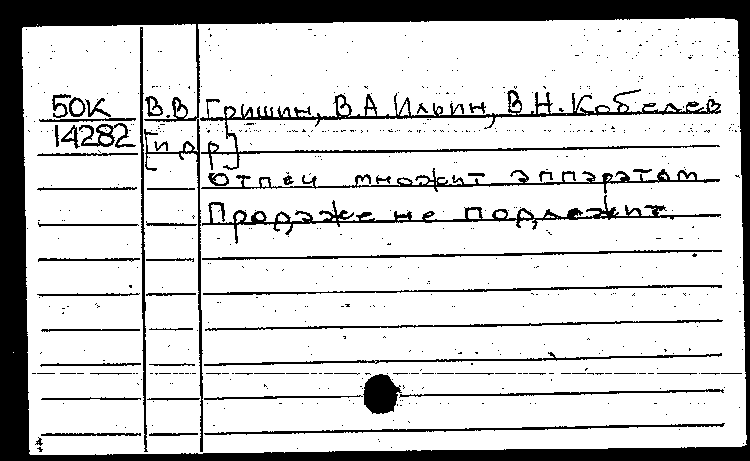 50К В.В. Гришин, В.А. Ильин, В.Н. Кобелев
14282 [и др]
Отпеч множит аппаратом
Продаже не подлежит.